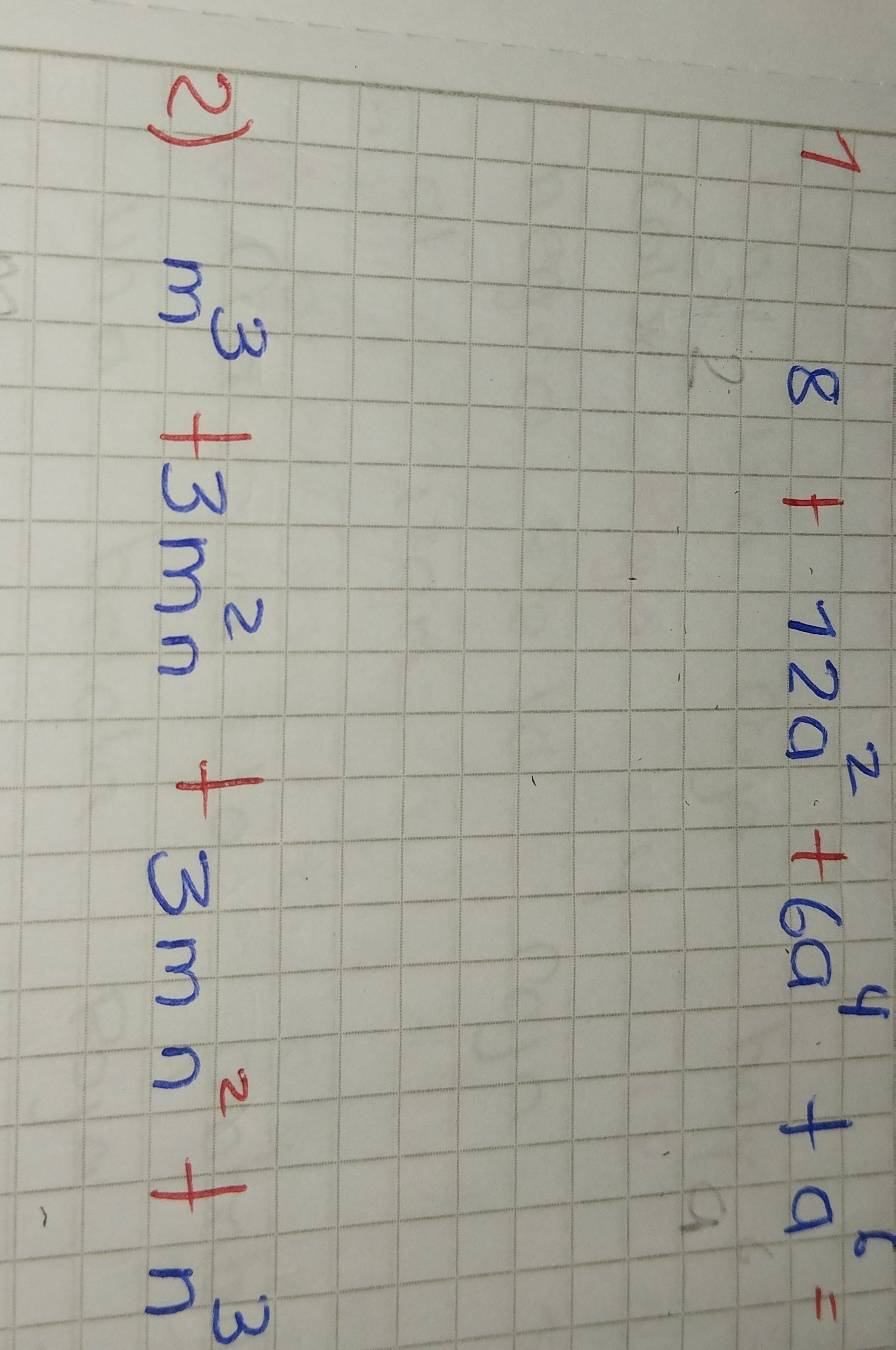 1 8 + 12a² + 6a⁴ + a⁶ =
2 a
2) m³ + 3m²n + 3mn² + n³